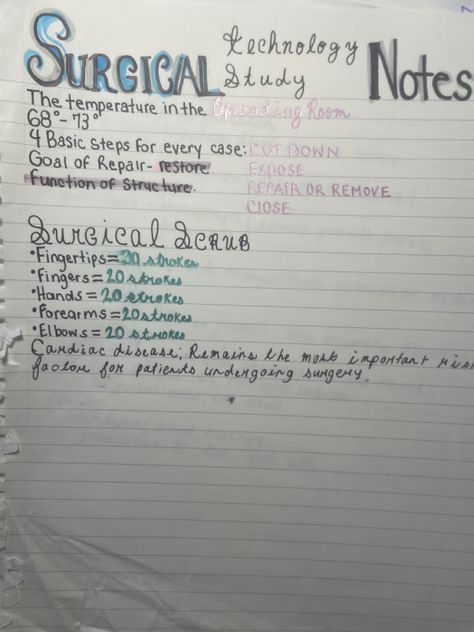 SURGICAL technology Study Notes
The temperature in the Operating Room
68°-73°
4 Basic steps for every case: CUT DOWN
Goal of Repair- restore EXPOSE
function of structure. REPAIR OR REMOVE
CLOSE
Surgical Scrub
•Fingertips=30 strokes
•Fingers=20 strokes
•Hands=20 strokes
•Forearms=20 strokes
•Elbows=20 strokes
Cardiac disease; Remains the most important ris
factor for patients undergoing surgery.